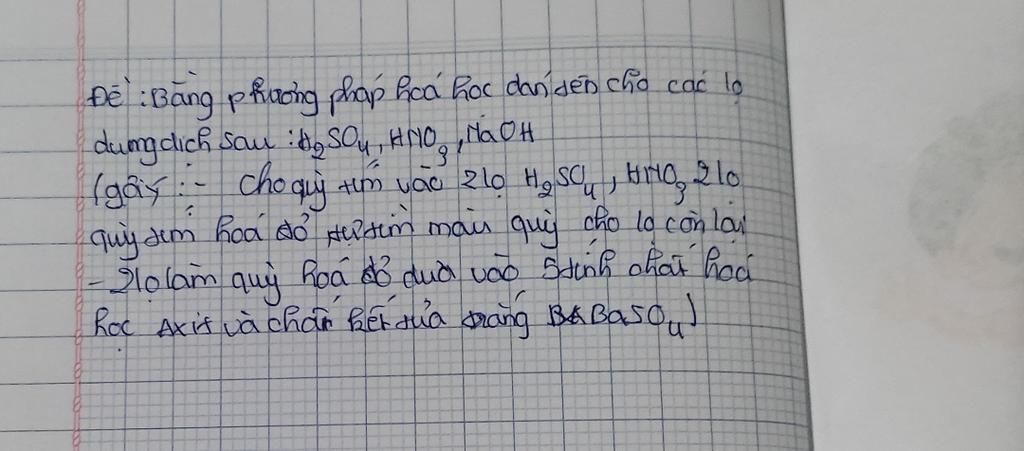 Đề : Bằng phương pháp hoá học dán đến cho các lọ
dung dịch sau : H₂SO₄, HNO₃, NaOH
(gây : - Cho quỳ tím vào 2 lọ H₂SO₄, HNO₃ 2 lọ
quỳ tím hoá đỏ từ tím màu quỳ cho lọ còn lại
- 2 lọ làm quỳ hoá đỏ dựa vào 5 tính chất hoá
học Axit và chất kết tủa trắng BaSO₄)